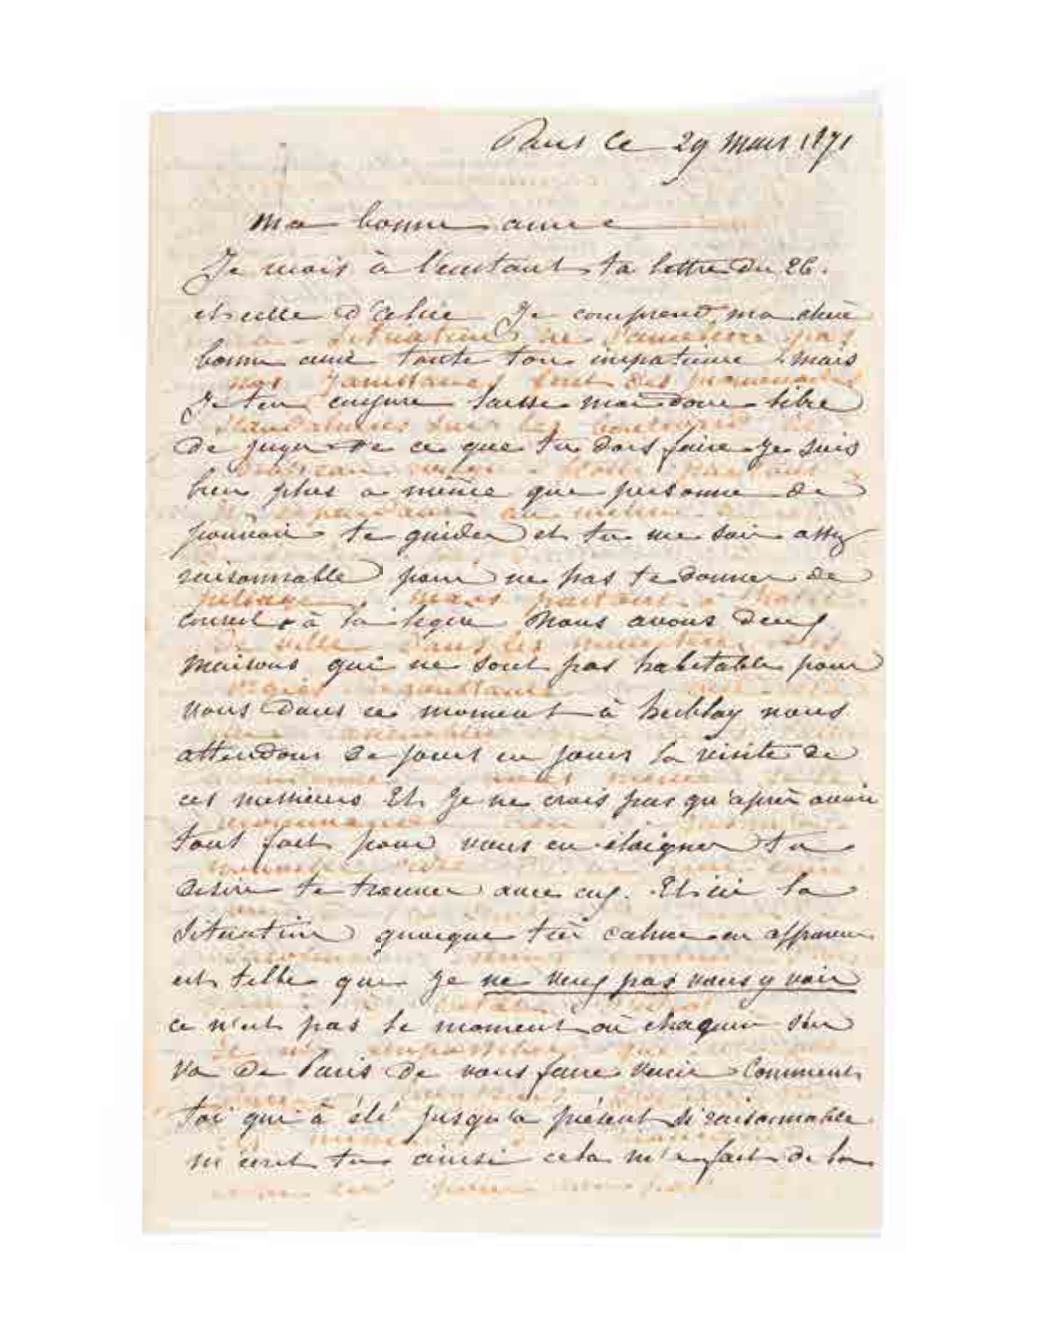 Paris ce 29 mars 1871
Ma bonne amie
Je reçois à l'instant ta lettre du 26.
et celle d'Celine Je comprend, ma chère
bonne amie toute ton impatience mais
Je t'en conjure laisse moi donc libre
de juger de ce que tu dois faire Je suis
bien plus a même que personne de
pouvoir te guider et tu me sais assez
raisonnable pour ne pas te donner de
conseil à la légère Nous avons deux
maisons qui ne sont pas habitable pour
vous dans ce moment à herblay nous
attendons de jours en jours la visite de
ces messieurs Et Je ne crois pas qu'après avoir
tout fait pour vous en éloigner tu
désire te trouver avec eux. Et ici la
situation quoique très calme en apparence
est telle que Je ne veux pas vous y voir
ce n'est pas le moment où chaqun s'en
va de Paris de vous faire venir Comment
toi qui à été jusqu'a présent si raisonnable
m'écrit tu ainsi cela m'a fait de la